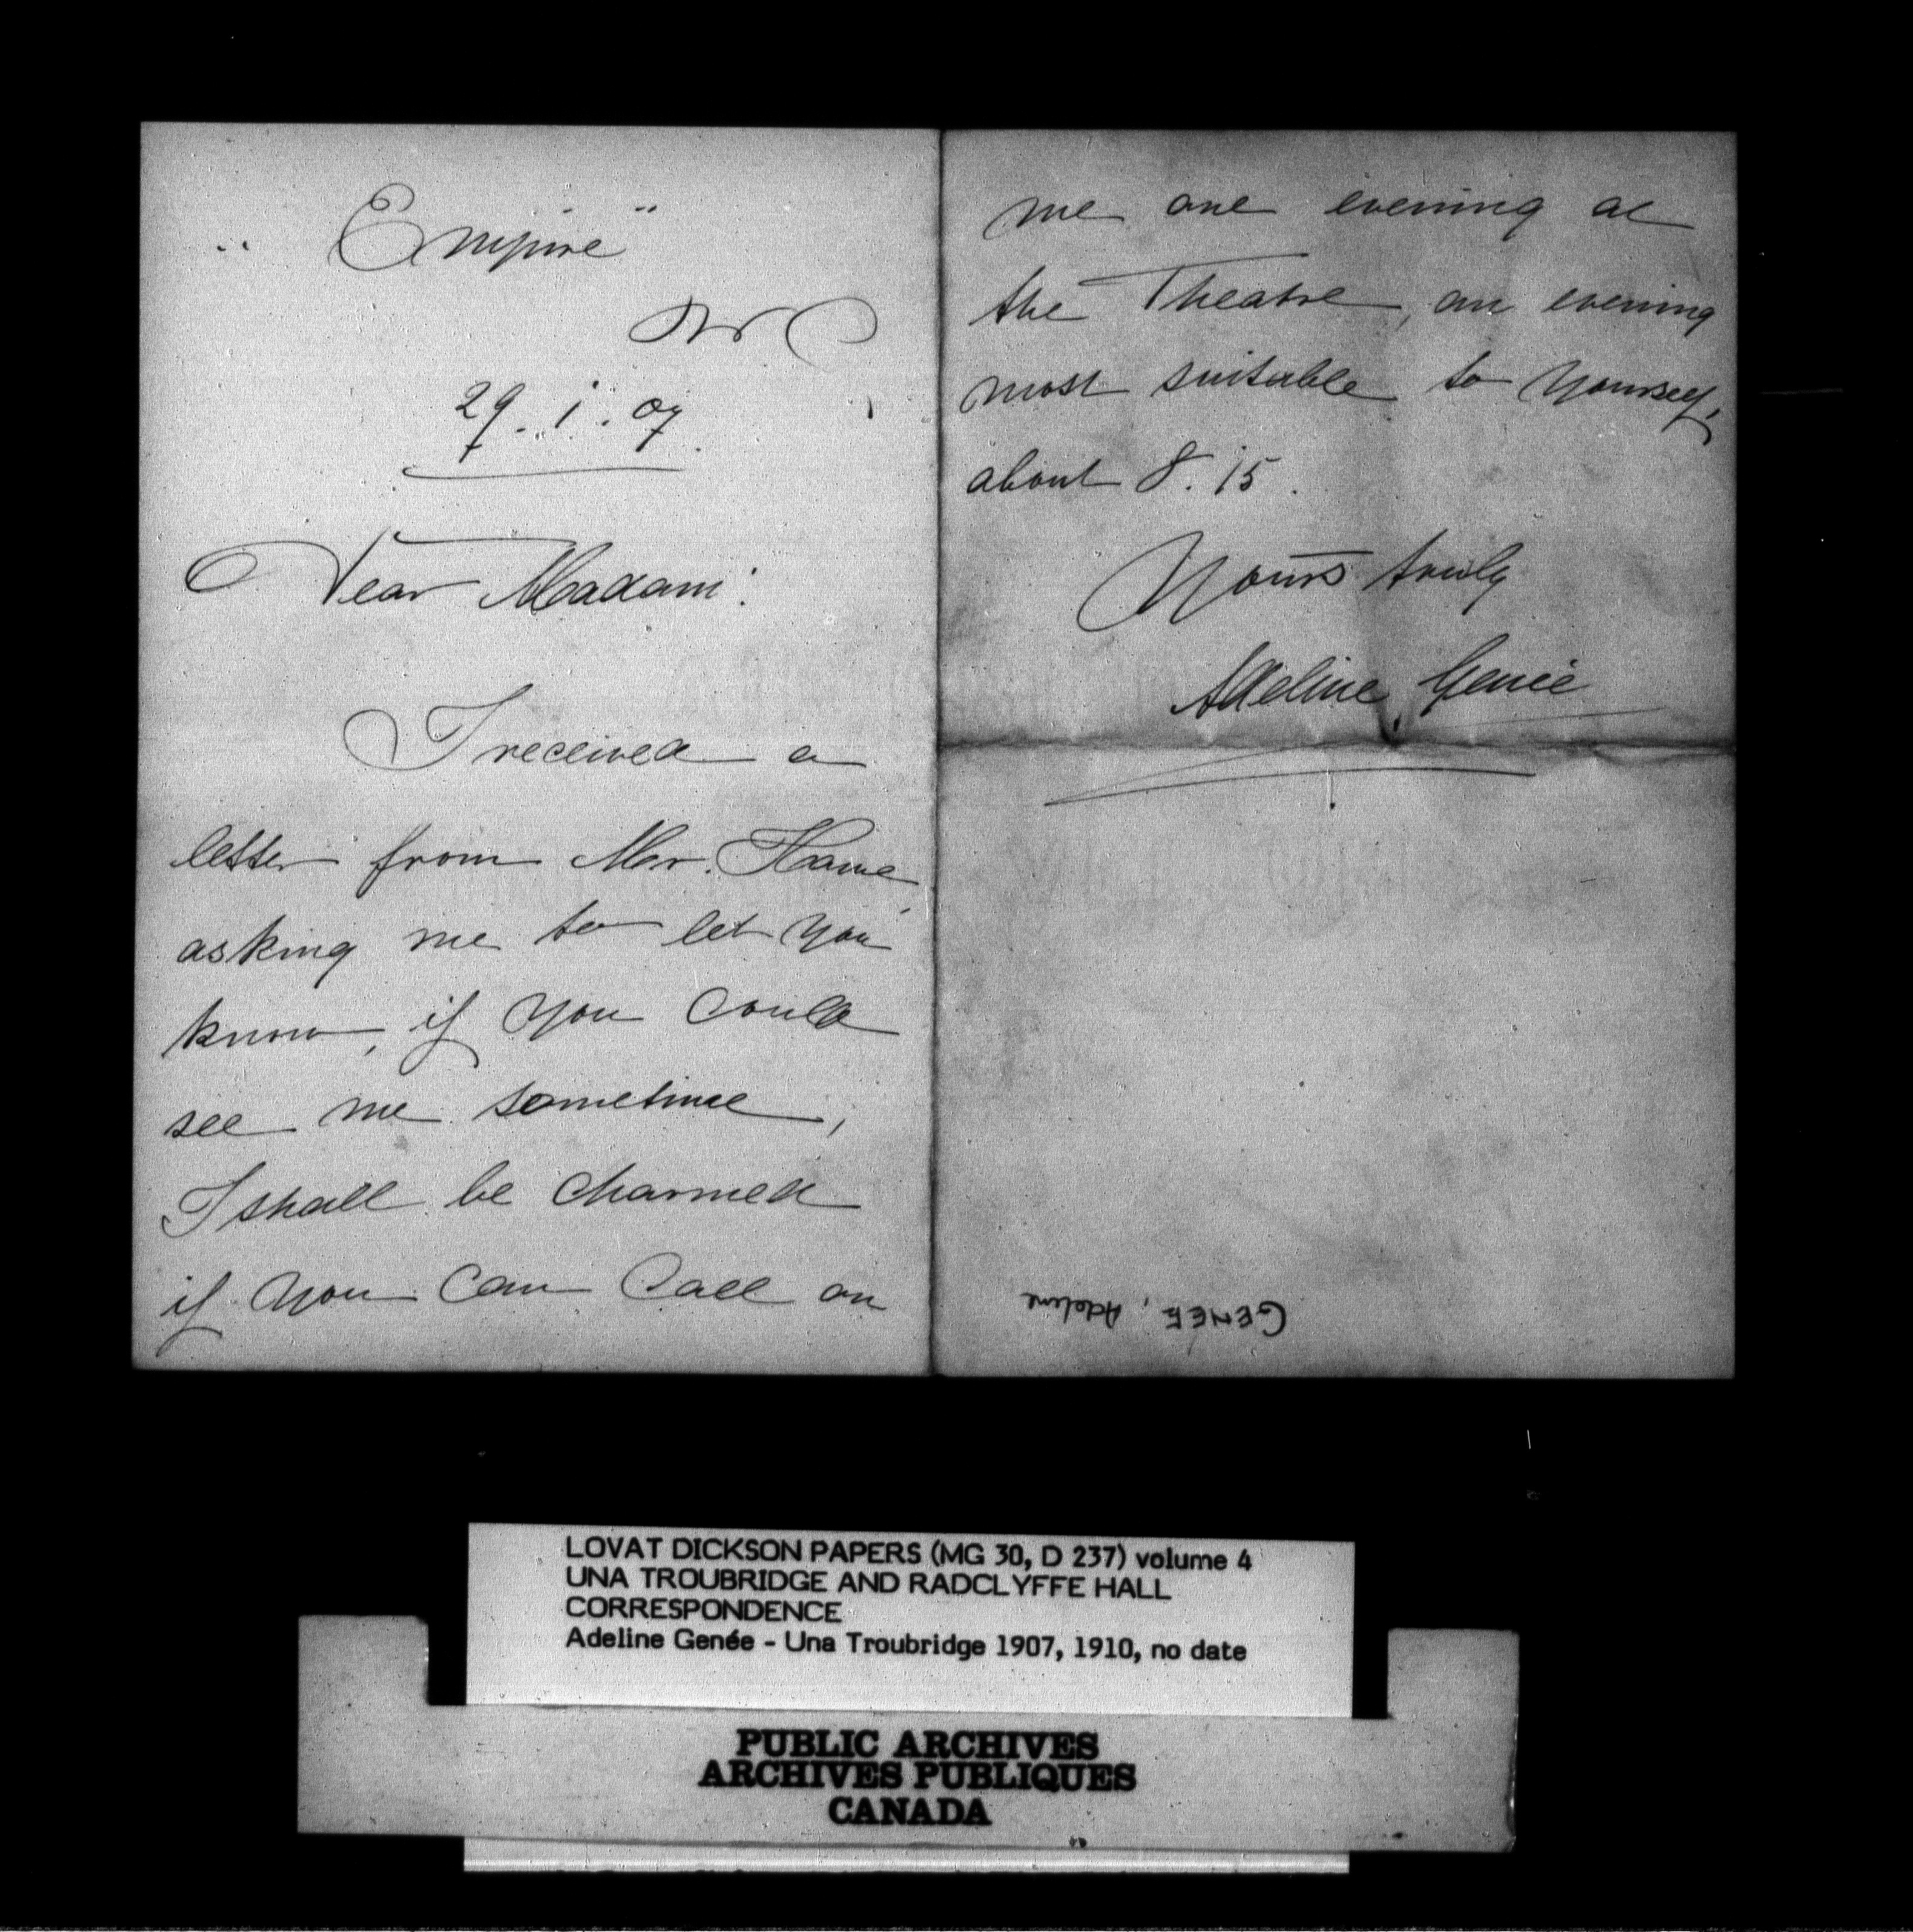 "Empire"
W C
29.1.07.
Dear Madam:
I received a
letter from Mr. Hame,
asking me to let you
know, if you could
see me sometime,
I shall be charmed
if you can call on
me one evening at
the Theatre, an evening
most suitable to yourself,
about 8.15.
Yours truly
Adeline Genée
GENÉE, Adeline
LOVAT DICKSON PAPERS (MG 30, D 237) volume 4
UNA TROUBRIDGE AND RADCLYFFE HALL
CORRESPONDENCE
Adeline Genée - Una Troubridge 1907, 1910, no date
PUBLIC ARCHIVES
ARCHIVES PUBLIQUES
CANADA